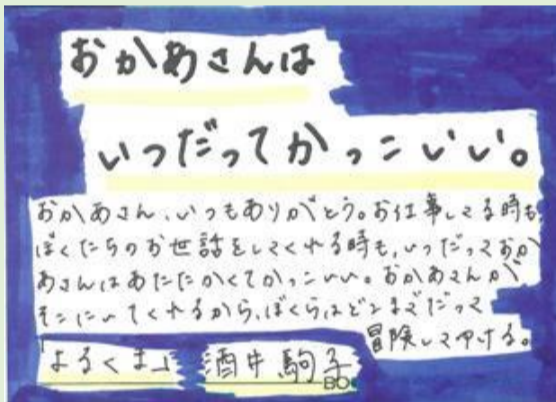 おかあさんは
いつだってかっこいい。
おかあさん、いつもありがとう。お仕事してる時も、
ぼくたちのお世話をしてくれる時も、いつだっておか
あさんはあたたかくてかっこいい。おかあさんが
そこにいてくれるから、ぼくらはどこまでだって
冒険して行ける。
「よるくま」 酒井駒子
BO